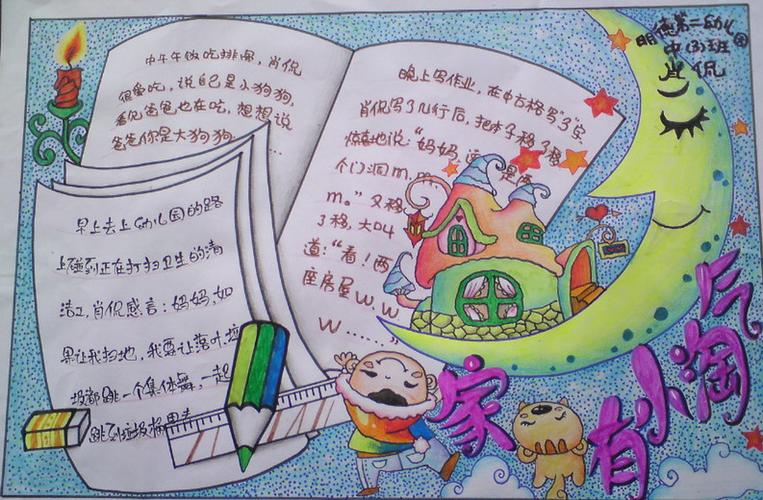 中午午做吃排骨，肖侃
很爱吃，说自己是小狗狗，
看见爸爸也在吃，想想说
爸爸你是大狗狗
晚上写作业，在田字格写"3"字
肖侃写了几行后，把本子移了移
惊喜地说："妈妈，
个门洞m
m。"又移
3移，大叫
道："看！两
座房屋W W
W……"
早上去上幼儿园的路
上碰到正在打扫卫生的清
洁工，肖侃感言：妈妈，如
果让我扫地，我要让落叶，垃
圾都跳一个集体舞，一起
跳到垃圾桶里去
明德第二幼儿园
中(3)班
肖侃
家有小淘气